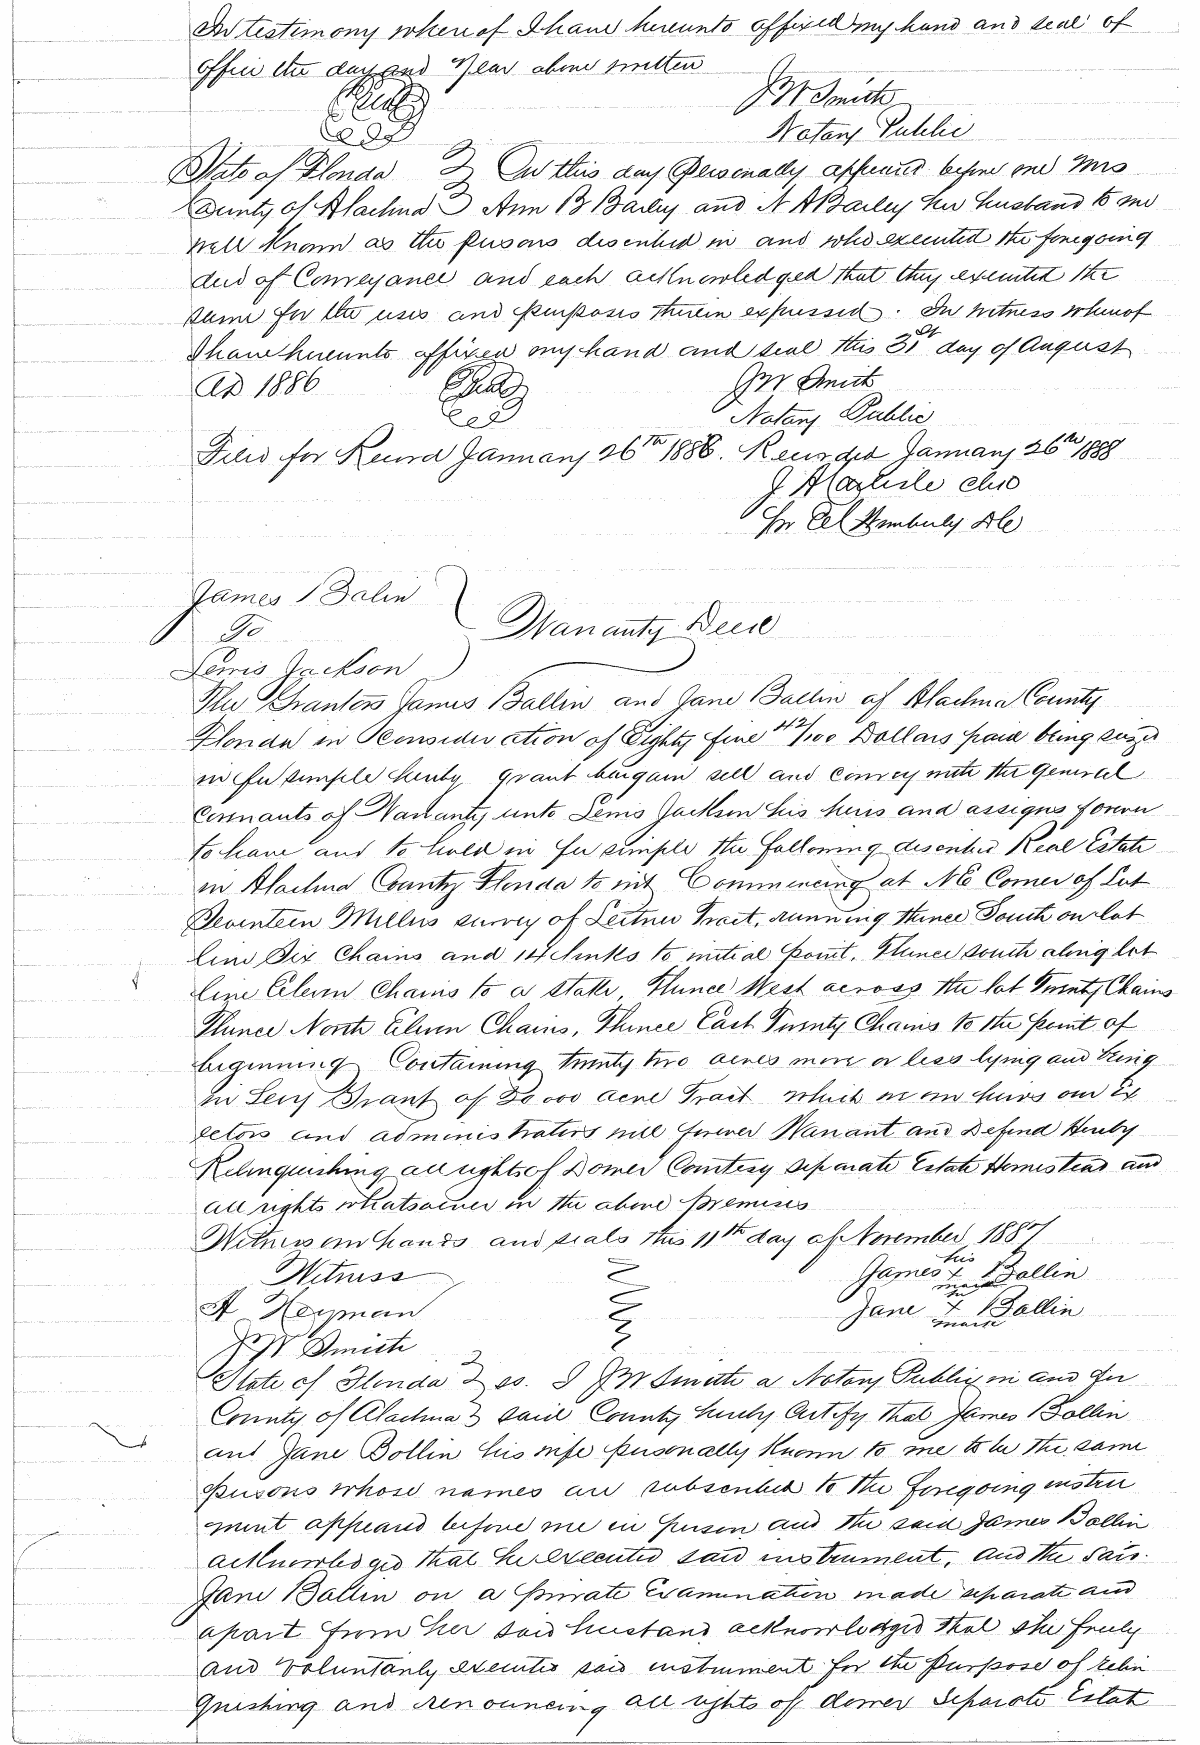 In testimony whereof I have hereunto affixed my hand and seal of
office the day and Year above written
Seal
J W Smith
Notary Public
State of Florida } On this day Personally appeared before me Mrs
County of Alachua } Ann B Bailey and N A Bailey her husband to me
well known as the persons described in and who executed the foregoing
deed of Conveyance and each acknowledged that they executed the
same for the uses and purposes therein expressed. In witness whereof
I have hereunto affixed my hand and seal this 31st day of August
AD 1886
Seal
J W Smith
Notary Public
Filed for Record January 26th 1888. Recorded January 26th 1888
J A Carlisle Clk
Pr Wimberly DC
James Balin
To } Warranty Deed
Lewis Jackson
The Grantors James Ballin and Jane Ballin of Alachua County
Florida in Consideration of Eighty five 42/100 Dollars paid being seized
in fee simple hereby grant bargain sell and convey with the general
Covenants of Warranty unto Lewis Jackson his heirs and assigns forever
to have and to hold in fee simple the following described Real Estate
in Alachua County Florida to wit Commencing at NE Corner of Lot
Seventeen Millers survey of Leitner Tract, running thence South on lot
line Six Chains and 14 links to initial point, Thence south along lot
line Eleven Chains to a stake, Thence West across the lot Twenty Chains
Thence North Eleven Chains, Thence East Twenty Chains to the point of
beginning Containing twenty two acres more or less lying and being
in Levy Grant of 20,000 acre Tract which we our heirs our Ex
ectors and administrators will forever Warrant and Defend Hereby
Relinquishing all rights of Dower Courtesy separate Estate Homestead and
all rights whatsoever in the above premises
Witness our hands and seals this 11th day of November 1887
Witness
his
James x Bollin
mark
A Heyman
Jane x Bollin
mark
J W Smith
State of Florida } ss. I J W Smith a Notary Public in and for
County of Alachua } said County hereby Certify that James Bollin
and Jane Bollin his wife personally known to me to be the same
persons whose names are subscribed to the foregoing instru
ment appeard before me in person and the said James Bollin
acknowledged that he executed said instrument, and the said
Jane Ballin on a private Examination made separate and
apart from her said husband acknowledged that she freely
and voluntarily executed said instrument for the purpose of relin
quishing and renouncing all rights of dower Separate Estate